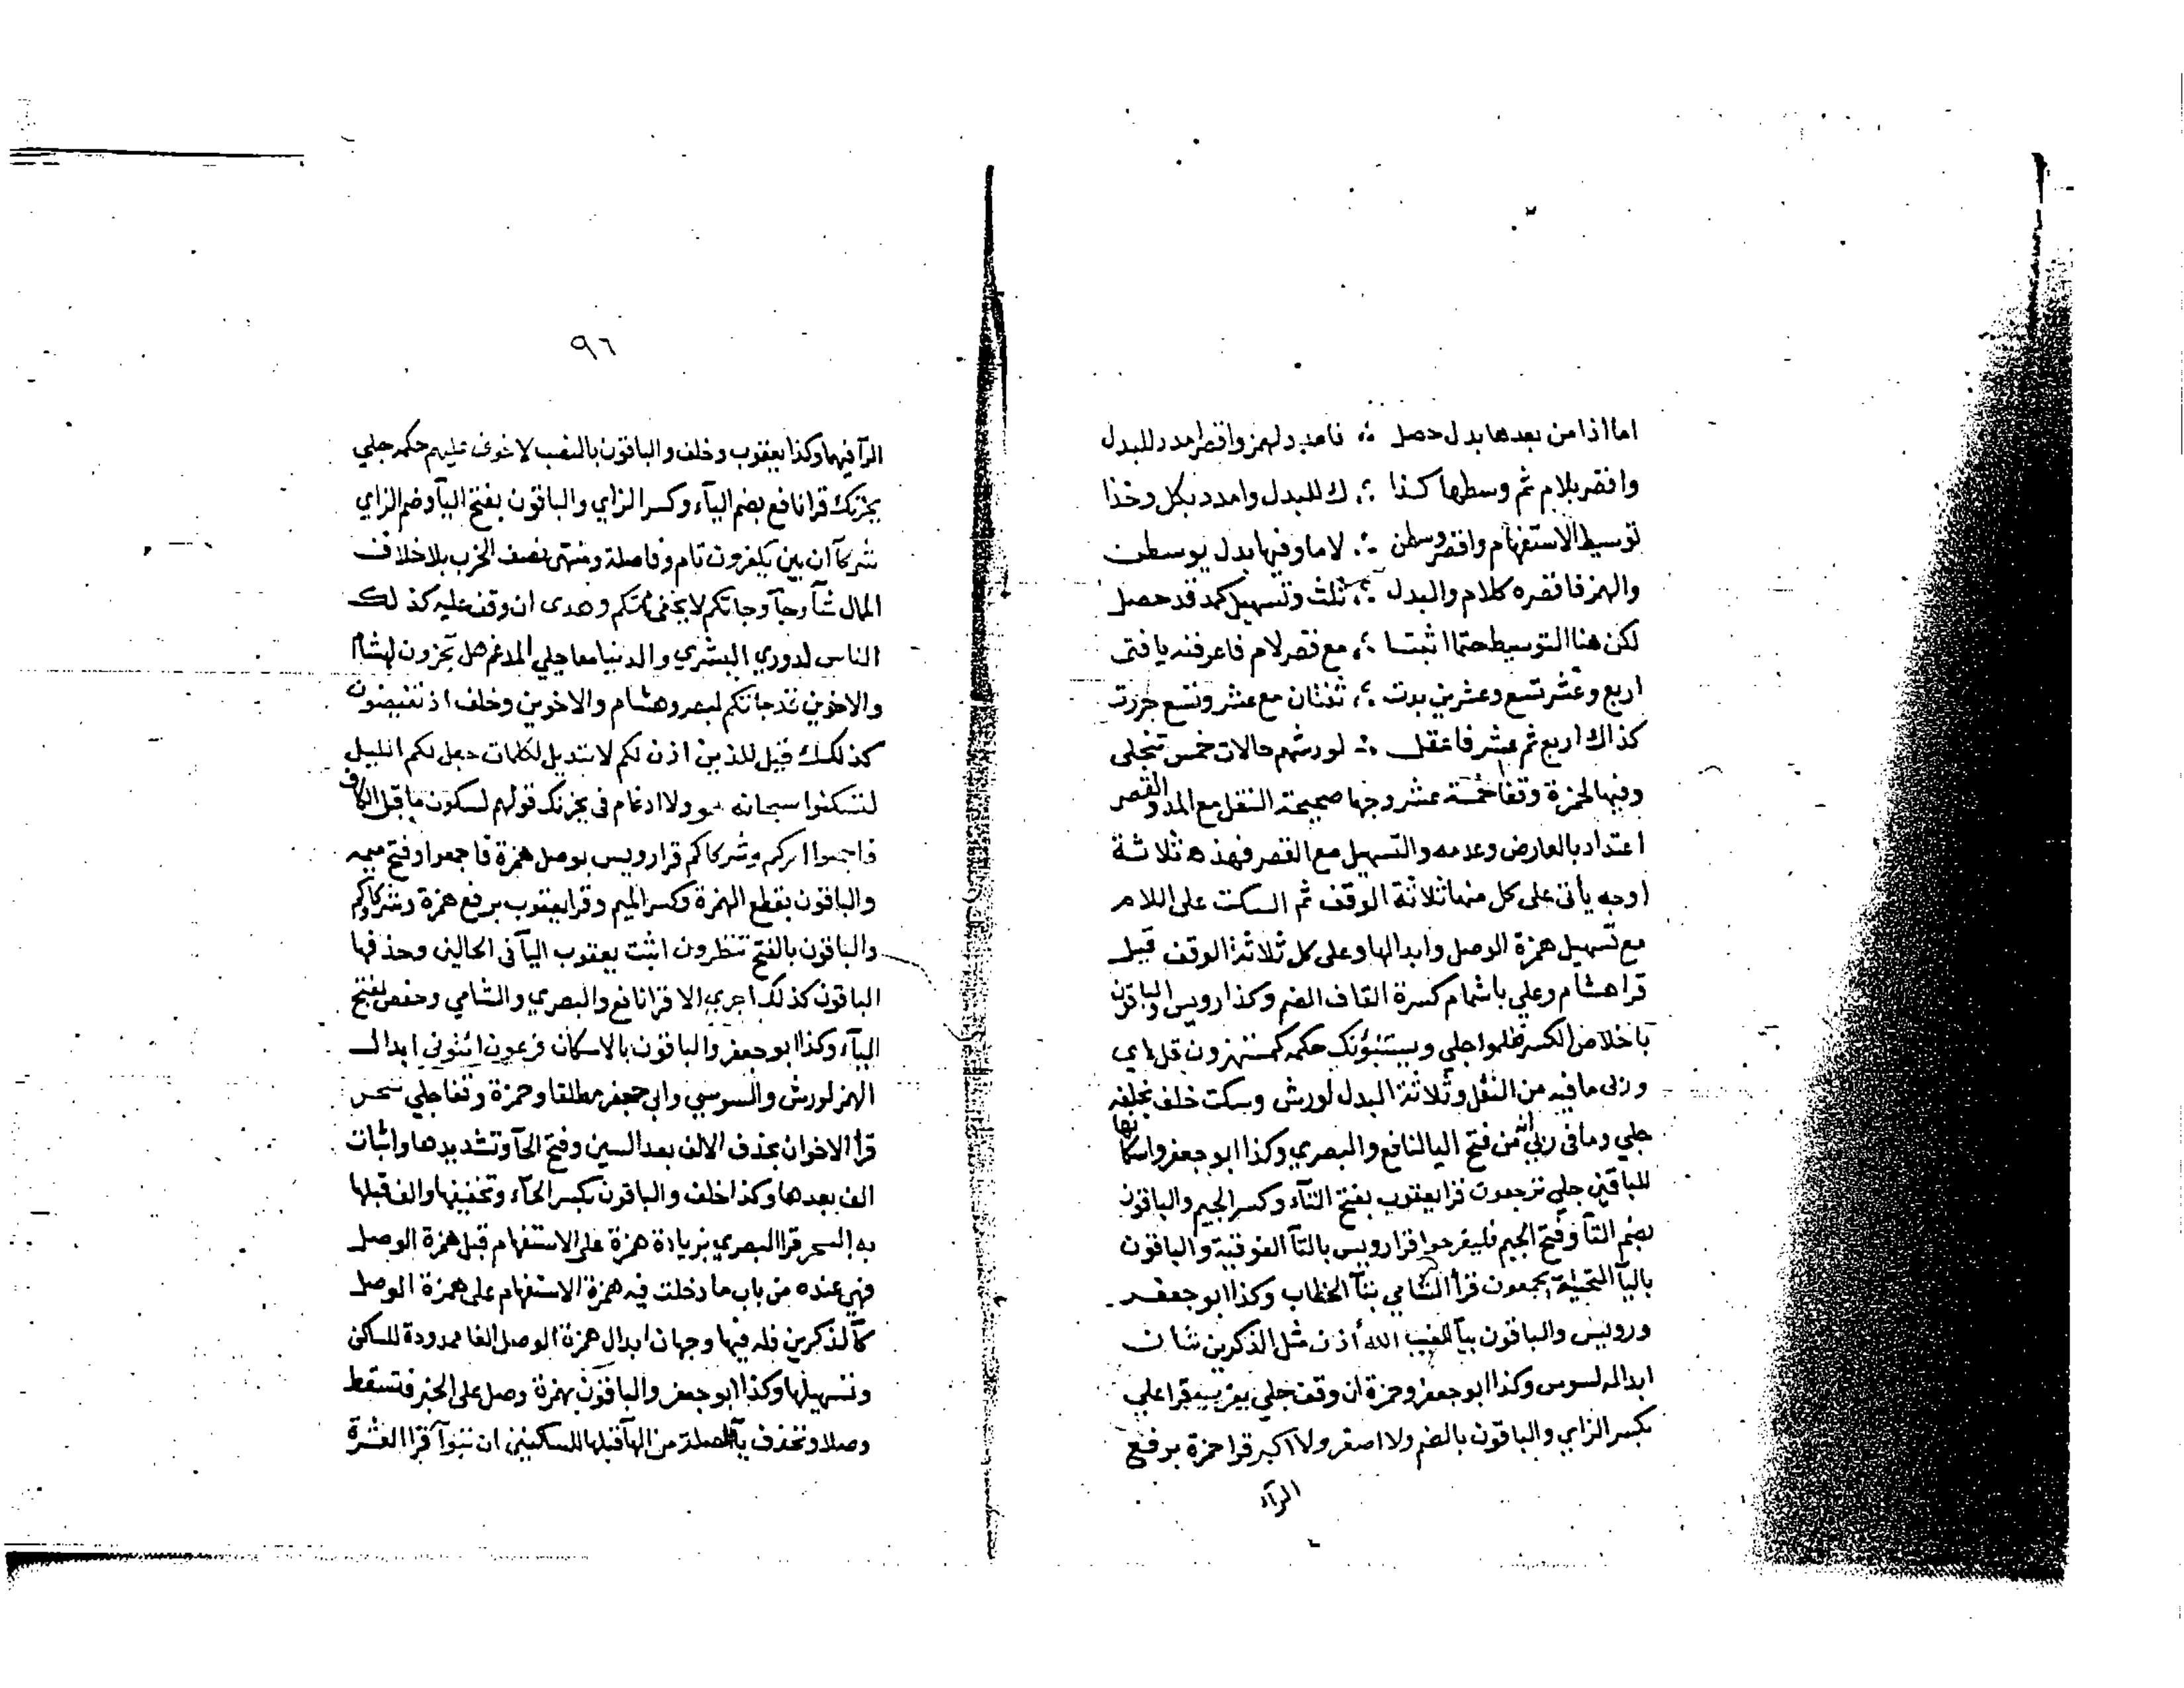 اما اذا من بعدها بدل حصل ؞ فامدد لهمز واقصر مدد للبدل
واقصر بلام ثم وسطها كذا ؞ ك للبدل وامدد بكل وخذا
توسيط الاستفهام واقصر وسطن ؞ لاما وفيها بدل يوسطن
والهمز فاقصره كلام والبدل ؞ ثلث وتسهيل كمد قد حصل
لكن هنا التوسيط حتما اثبتا ؞ مع قصر لام فاعرفنه يا فتى
اربع وعشر تسع وعشرين بدت ؞ ثنتان مع عشر وتسع جررت
كذاك اربع ثم عشر فاعقل ؞ لورشهم حالات خمس تنجلى
وفيها لحمزة وقفا خمسة عشر وجها صحيحة النقل مع المد والقصر
اعتدادا بالعارض وعدمه والتسهيل مع القصر فهذه ثلاثة
اوجه يأتى على كل منها ثلاثة الوقف ثم السكت على اللام
مع تسهيل همزة الوصل وابدالها وعلى كل ثلاثة الوقف قيل
قرا هشام وعلي باشمام كسرة القاف الضم وكذا رويس والباقون
باخلاص الكسر ظلموا جلي ويستنبؤنك حكمه كمستهزون قل اي
وربى ما فيه من النقل وثلاثة البدل لورش وسكت خلف بخلفه
جلي وما فى ربي انه من فتح اليا لنافع والبصري وكذا ابو جعفر واسكانها
للباقين جلي ترجعون قرا يعقوب بفتح التآء وكسر الجيم والباقون
بضم التآ وفتح الجيم فليفرحوا قرا رويس بالتآ الفوقية والباقون
باليآ التحتية يجمعون قرأ الشامي بتآ الخطاب وكذا ابو جعفر
ورويس والباقون بيآ الغيب الله أذن مثل الذكرين شان
ابداله لسوس وكذا ابو جعفر وحمزة ان وقف جلي يعزب قرا علي
بكسر الزاي والباقون بالضم ولا اصغر ولا اكبر قرا حمزة برفع
الرآء
٩٦
الرآ فيهما وكذا يعقوب وخلف والباقون بالنصب لا خوف عليهم حكمه جلي
يحزنك قرا نافع بضم اليآء وكسر الزاي والباقون بفتح اليآ وضم الزاي
شركآ ان بين يكفرون تام وفاصلة ومنتهى نصف الحزب بلا خلاف
الممال شآ وجآ وجاتكم لا يخفى لمتكم وهدى ان وقف عليه كذلك
الناس لدوري البشري والدنيا معا جلي المدغم هل تجزون لهشام
والاخوين قد جاتكم لبصر وهشام والاخوين وخلف اذ تفيضون
كذلك قيل للذين اذن لكم لا تبديل لكلمات جعل لكم الليل
لتسكنوا سبحانه هو ولا ادغام فى يحزنك قولهم لسكون ما قبل الكاف
فاجمعوا امركم وشركاكم قرا رويس بوصل همزة فاجمعوا وفتح ميمه
والباقون بقطع الهمزة وكسر الميم وقرا يعقوب برفع همزة وشركاوكم
والباقون بالفتح تنظرون اثبت يعقوب اليآ فى الحالين وحذفها
الباقون كذلك اجري الا قرا نافع والبصري والشامي وحفص بفتح
اليآء وكذا ابو جعفر والباقون بالاسكان فرعون ائتوني ابدال
الهمز لورش والسوسي وابي جعفر مطلقا وحمزة وقفا جلي سحر
قرأ الاخوان بحذف الالف بعد السين وفتح الحآ وتشديدها واثبات
الف بعدها وكذا خلف والباقون بكسر الحآء وتخفيفها والف قبلها
به السحر قرا البصري بزيادة همزة على الاستفهام قبل همزة الوصل
فهي عنده من باب ما دخلت فيه همزة الاستفهام على همزة الوصل
كآلذكرين فله فيها وجهان ابدال همزة الوصل الفا ممدودة للساكن
وتسهيلها وكذا ابو جعفر والباقون بهمزة وصل على الخبر فتسقط
وصلا وتحذف يآ الصلة من الهآ قبلها للسكينين ان تبوآ قرا العشرة